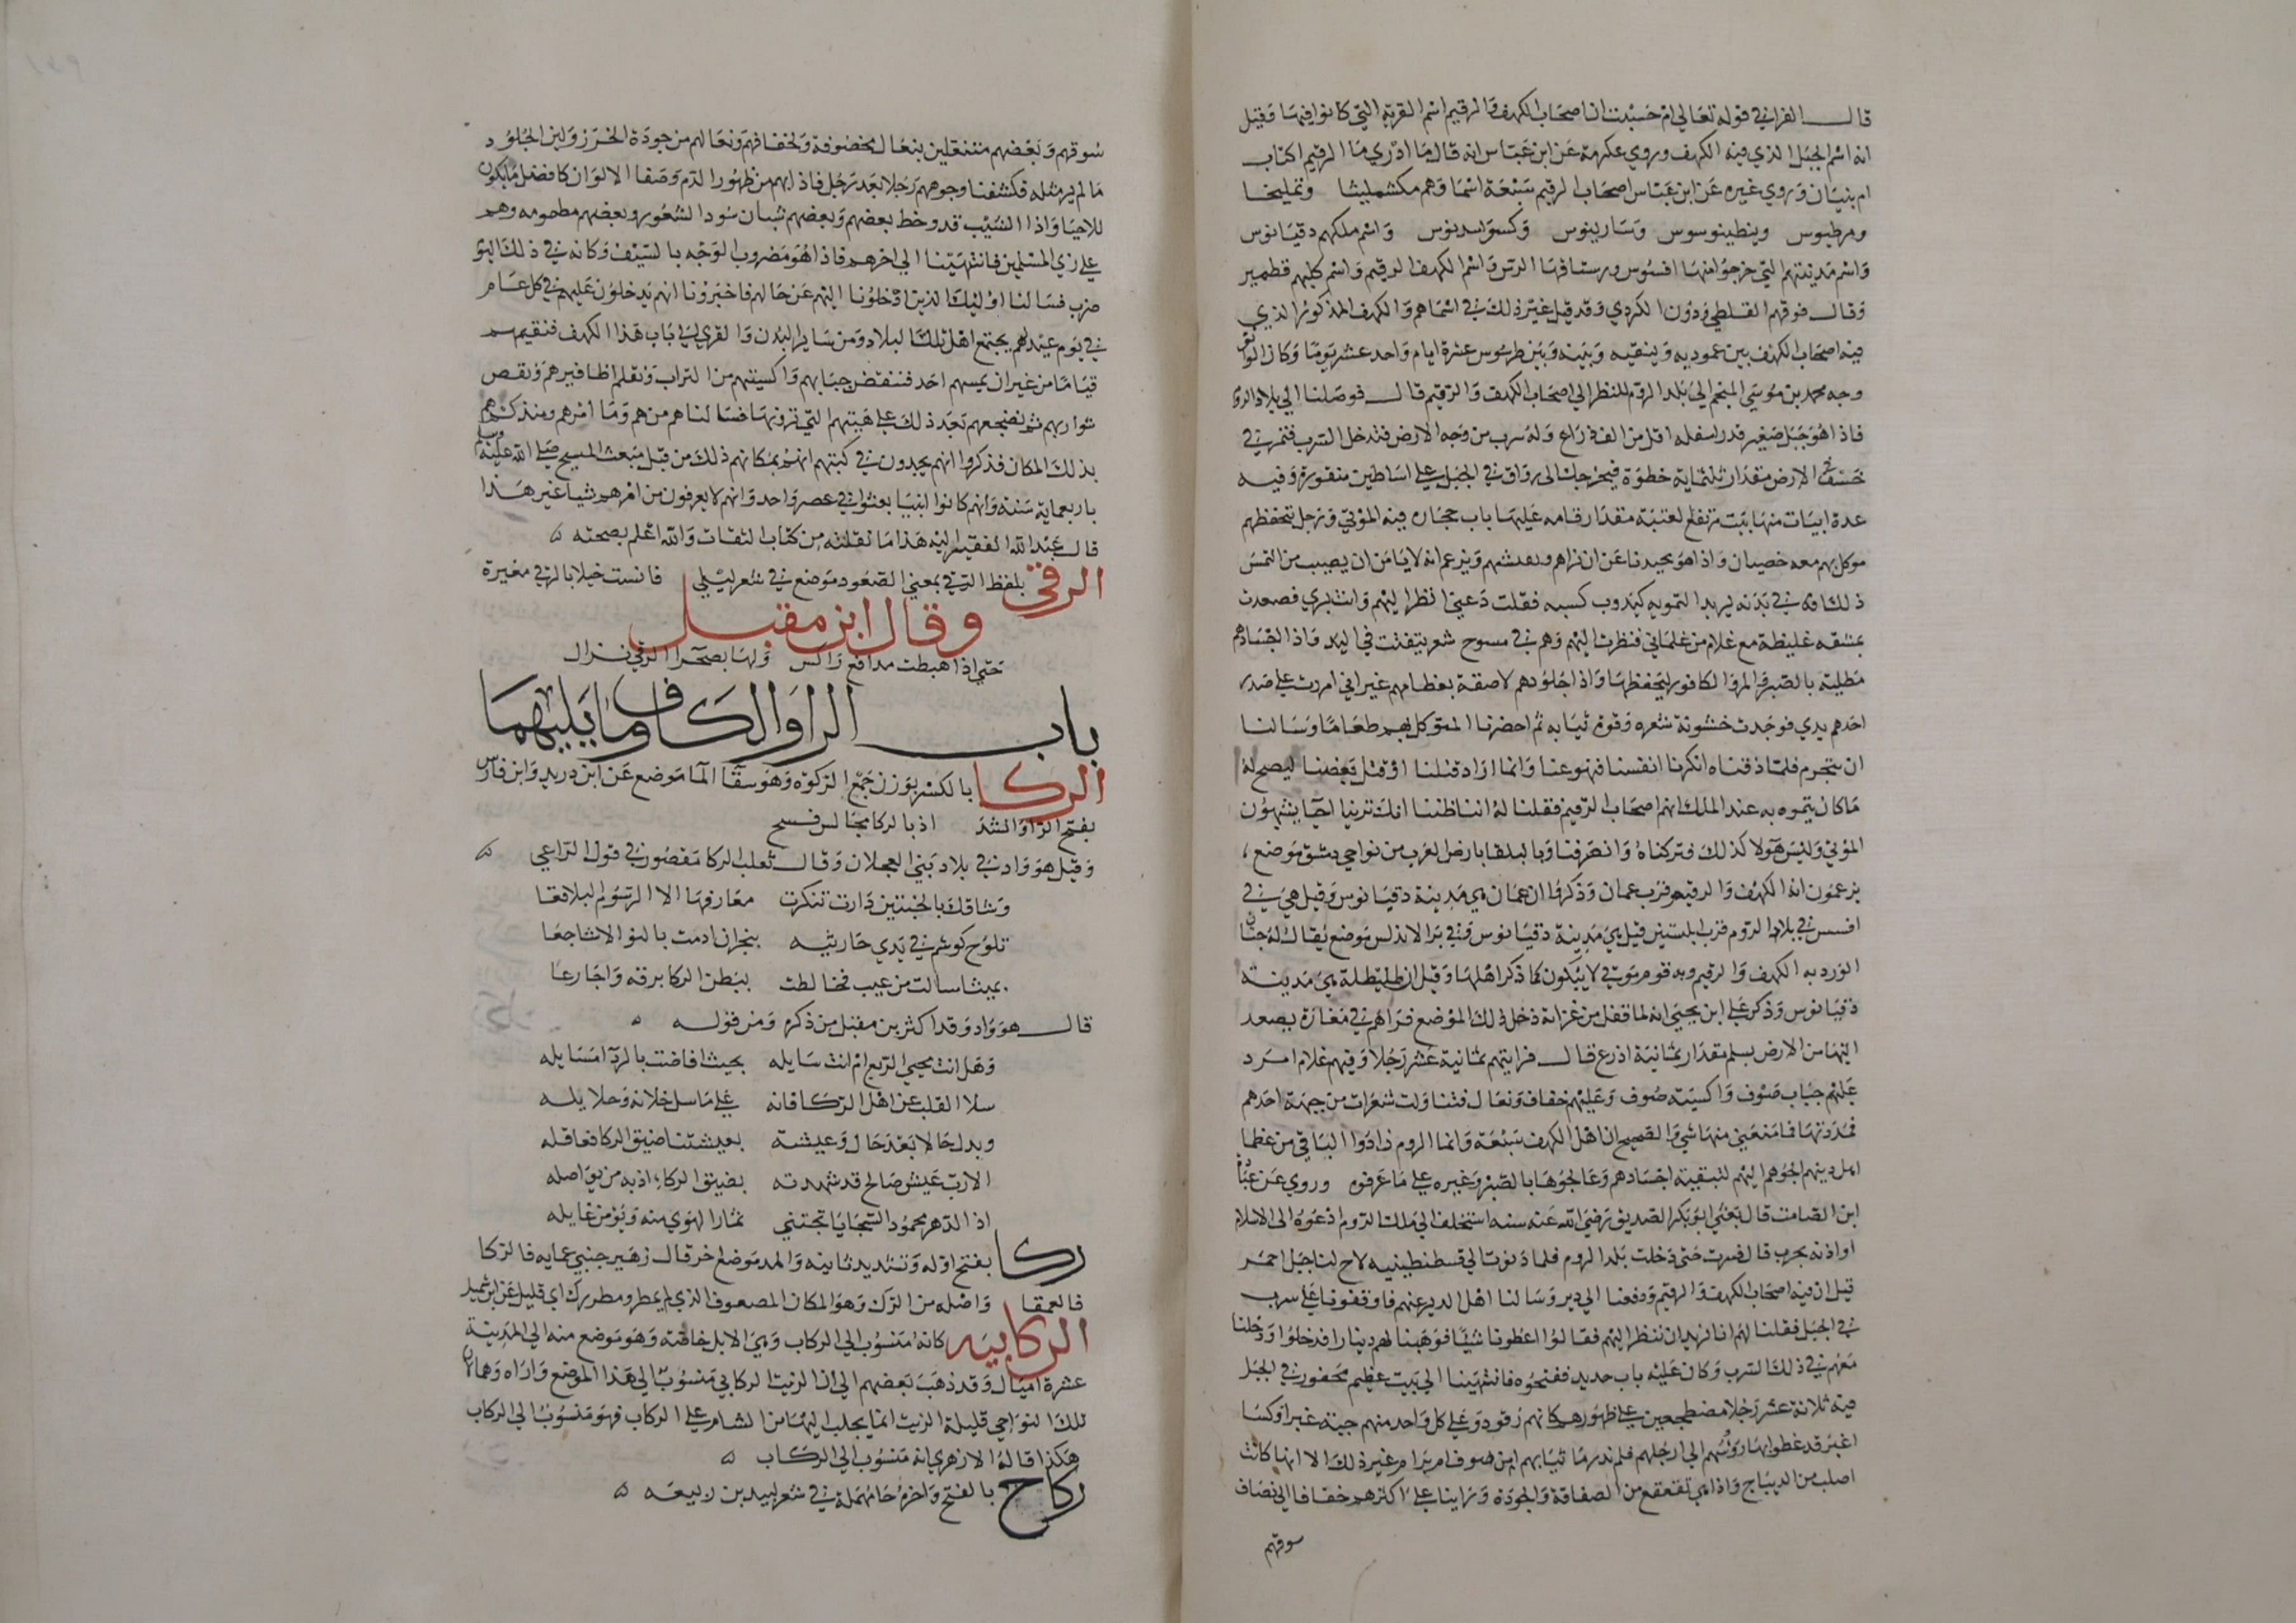 قال الفرا في قوله تعالي ام حسبت ان اصحاب الكهف والرقيم اسم القرية التي كانوا فيها وقيل
انه اسم الجبل الذي فيه الكهف وروي عكرمة عن ابن عباس انه قال ما ادري ما الرقيم اكتاب
ام بنيان وروي غيره عن ابن عباس اصحاب الرقيم سبعة اسما وهم مكشملينا وتمليخا
ومرطوس وينطينوسوس وسارينوس وكسوسدنوس واسم ملكهم دقيانوس
واسم مدينتهم التي خرجوا منها افسوس ورستاقها الرس واسم الكهف الرقيم واسم كلبهم قطمير
وقال فوقهم القلطي ودون الكردي وقد قيل غير ذلك في اسماهم والكهف المذكور الذي
فيه اصحاب الكهف بين عموريه ونيقيه وبينه وبين طرسوس عشرة ايام واحد عشر يوما وكان الواثق
وجه محمد بن موسي المنجم الي بلد الروم للنظر الي اصحاب الكهف والرقيم قال فوصلنا الي بلاد الروم
فاذا هو جبل صغير قدر اسفله اقل من الف ذراع وله سرب من وجه الارض فتدخل السرب فتمر في
خسف الارض مقدار ثلثماية خطوة فيخرجك الي رواق في الجبل علي اساطين منقورة وفيه
عدة ابيات منها بيت مرتفع العتبة مقدار قامه عليها باب حجاره فيه الموتي ورجل يتحفظهم
موكل بهم معه خصيان واذا هو يحيدنا عن ان نراهم ونفتشهم ويزعم انه لا يامن ان يصيب من التمس
ذلك افة في بدنه يريد التمويه ليدوب كسبه فقلت دعني انظر اليهم وانت بري فصعدت
بمشقه غليظة مع غلام من غلماني فنظرت اليهم وهم في مسوح شعر يتفتت في اليد واذا اجسادهم
مطلية بالصبر والمر والكافور ليحفظها واذا جلودهم لاصقة بعظامهم غير اني امررت علي صدر
احدهم يدي فوجدت خشونة شعره وقوة ثيابه ثم احضرنا المتوكل بهم طعاما وسالنا
ان نتجرم فلما ذقناه انكرنا انفسنا فتهوعنا وانما اراد قتلنا او قتل بعضنا ليصح له
ما كان يتموه به عند الملك انهم اصحاب الرقيم فقلنا له انا ظننا انك ترينا احيا يشبهون
الموتي وليس هولا كذلك فتركناه وانصرفنا وبالبلقا بارض العرب من نواحي دمشق موضع
يزعمون انه الكهف والرقيم قرب عمان وذكروا ان عمان هي مدينة دقيانوس وقيل هي في
افسس في بلاد الروم قرب ابلستين قيل هي مدينة دقيانوس وفي بر الاندلس موضع يقال له جنان
الورد به الكهف والرقيم وبه قوم موتي لا يبلون كما ذكر اهلها وقيل ان طليطلة هي مدينة
دقيانوس وذكر علي ابن يحيي انه لما قفل من غزاته دخل ذلك الموضع فراهم في مغارة يصعد
اليها من الارض بسلم مقدار ثمانية اذرع قال فرايتهم ثمانية عشر رجلا وفيهم غلام امرد
عليهم جباب صوف واكسية صوف وعليهم خفاف ونعال فتناولت شعرات من جبهة احدهم
فمددتها فما منعني منها شي والصحيح ان اهل الكهف سبعة وانما الروم زادوا الباقي من عظما
اهل دينهم اجوهم اليهم لتبقية اجسادهم وعالجوها بالصبر وغيره علي ما عرفوه وروي عن عبادة
ابن الصامت قال بعثني ابو بكر الصديق رضي الله عنه سنه استخلف الي ملك الروم ادعوه الي الاسلام
او اذنه بحرب قال فسرت حتي دخلت بلد الروم فلما دنوت الي قسطنطينيه لاح لنا جبل احمر
قيل ان فيه اصحاب الكهف والرقيم ودفعنا الي دير وسالنا اهل الدير عنهم فاوقفونا علي سرب
في الجبل فقلنا لهم انا نريد ان ننظر اليهم فقالوا اعطونا شيئا فوهبنا لهم دينارا فدخلوا ودخلنا
معهم في ذلك السرب وكان عليه باب حديد ففتحوه فانتهينا الي بيت عظيم محفور في الجبل
فيه ثلاثة عشر رجلا مضطجعين علي ظهورهم كانهم رقود وعلي كل واحد منهم جبة غبرا وكسا
اغبر قد غطوا بها رؤسهم الي ارجلهم فلم ندر ما ثيابهم امن صوف ام وبر ام غير ذلك الا انها كانت
اصلب من الديباج واذا هي تقعقع من الصفاقة والجودة وراينا علي اكثرهم خفافا الي انصاف
سوقهم
سوقهم وبعضهم منتعلين بنعال مخصوفة ولخفافهم ونعالهم من جودة الخرز ولين الجلود
ما لم ير مثله فكشفنا وجوههم رجلا بعد رجل فاذا بهم من ظهور الدم وصفا الالوان كافضل ما يكون
للاحيا واذا الشيب قد وخط بعضهم وبعضهم شبان سود الشعور وبعضهم مطمومه وهم
علي زي المسلمين فانتهينا الي اخرهم فاذا هو مضروب الوجه بالسيف وكانه في ذلك اليوم
ضرب فسالنا اوليك الذين ادخلونا اليهم عن حالهم فاخبرونا انهم يدخلون عليهم في كل عام
في يوم عيد لهم يجتمع اهل تلك البلاد ومن ساير المدن والقري الي باب هذا الكهف فنقيمهم
قياما من غير ان يمسهم احد فننفض جبابهم واكسيتهم من التراب ونقلم اظافيرهم ونقص
شواربهم ثم نضجعهم بعد ذلك علي هيتهم التي ترونها فسالناهم من هم وما امرهم ومنذ كم هم
بذلك المكان فذكروا انهم يجدون في كتبهم انهم بمكانهم ذلك من قبل مبعث المسيح صلي الله عليه وسلم
باربعماية سنة وانهم كانوا انبيا بعثوا في عصر واحد وانهم لا يعرفون من امرهم شيا غير هذا
قال عبد الله الفقير اليه هذا ما نقلته من كتاب الثقات والله اعلم بصحته
الرقي بلفظ الرقي بمعني الصعود موضع في شعر ليلي فانست خيلا بالرقي مغيرة
وقال ابن مقبل
حتي اذا هبطت مدافع راكس ولها بصحرا الرقي نزال
باب الرا والكاف وما يليهما
الركا بالكسر بوزن جمع الركوة وهو سقا الما موضع عن ابن دريد وابن فارس
بفتح الرا وانشد اذ بالركا مجالس فسح
وقيل هو واد في بلاد بني العجلان وقال ثعلب الركا مقصور في قول الراعي
وشاقك بالخبتين دارت تنكرت معارفها الا الرسوم البلاقعا
تلوح كوشم في يدي حارثيه بنجران ادمت بالنو الاشاجعا
بميثا سالت من عيب فخالطت ببطن الركا برقه واجارعا
قال هو واد وقد اكثر بن مقبل من ذكره ومن قوله
وهل انت محيي الربع ام انت سايله بحيث افاضت بالردا مسايله
سلا القلب عن اهل الركا فانه علي ما سل خلانه وحلايله
وبدل حالا بعد حال وعيشة بعيشتنا ضيق الركا فعاقله
الا رب عيش صالح قد شهدته بضيق الركا اذ به من يواصله
اذا الدهر محمود السجايا تجتني ثمار الهوي منه ويؤمن غايله
ركا بفتح اوله وتشديد ثانيه والمد موضع اخر قال زهير جنبي عمايه فالركا
فالعمقا واصله من الرك وهو المكان المضعوف الذي لم يمطر ومطر رك اي قليل عن ابن شميل
الركابيه كانه منسوب الي الركاب وهي الابل خاصة وهو موضع منه الي المدينة
عشرة اميال وقد ذهب بعضهم الي ان الزيت الركابي منسوب الي هذا الموضع واراه وهما لان
تلك النواحي قليلة الزيت انما يجلب اليها من الشام علي الركاب فهو منسوب الي الركاب
هكذا قاله الازهري انه منسوب الي الركاب
ركاح بالفتح واخره حا مهملة في شعر لبيد بن ربيعه